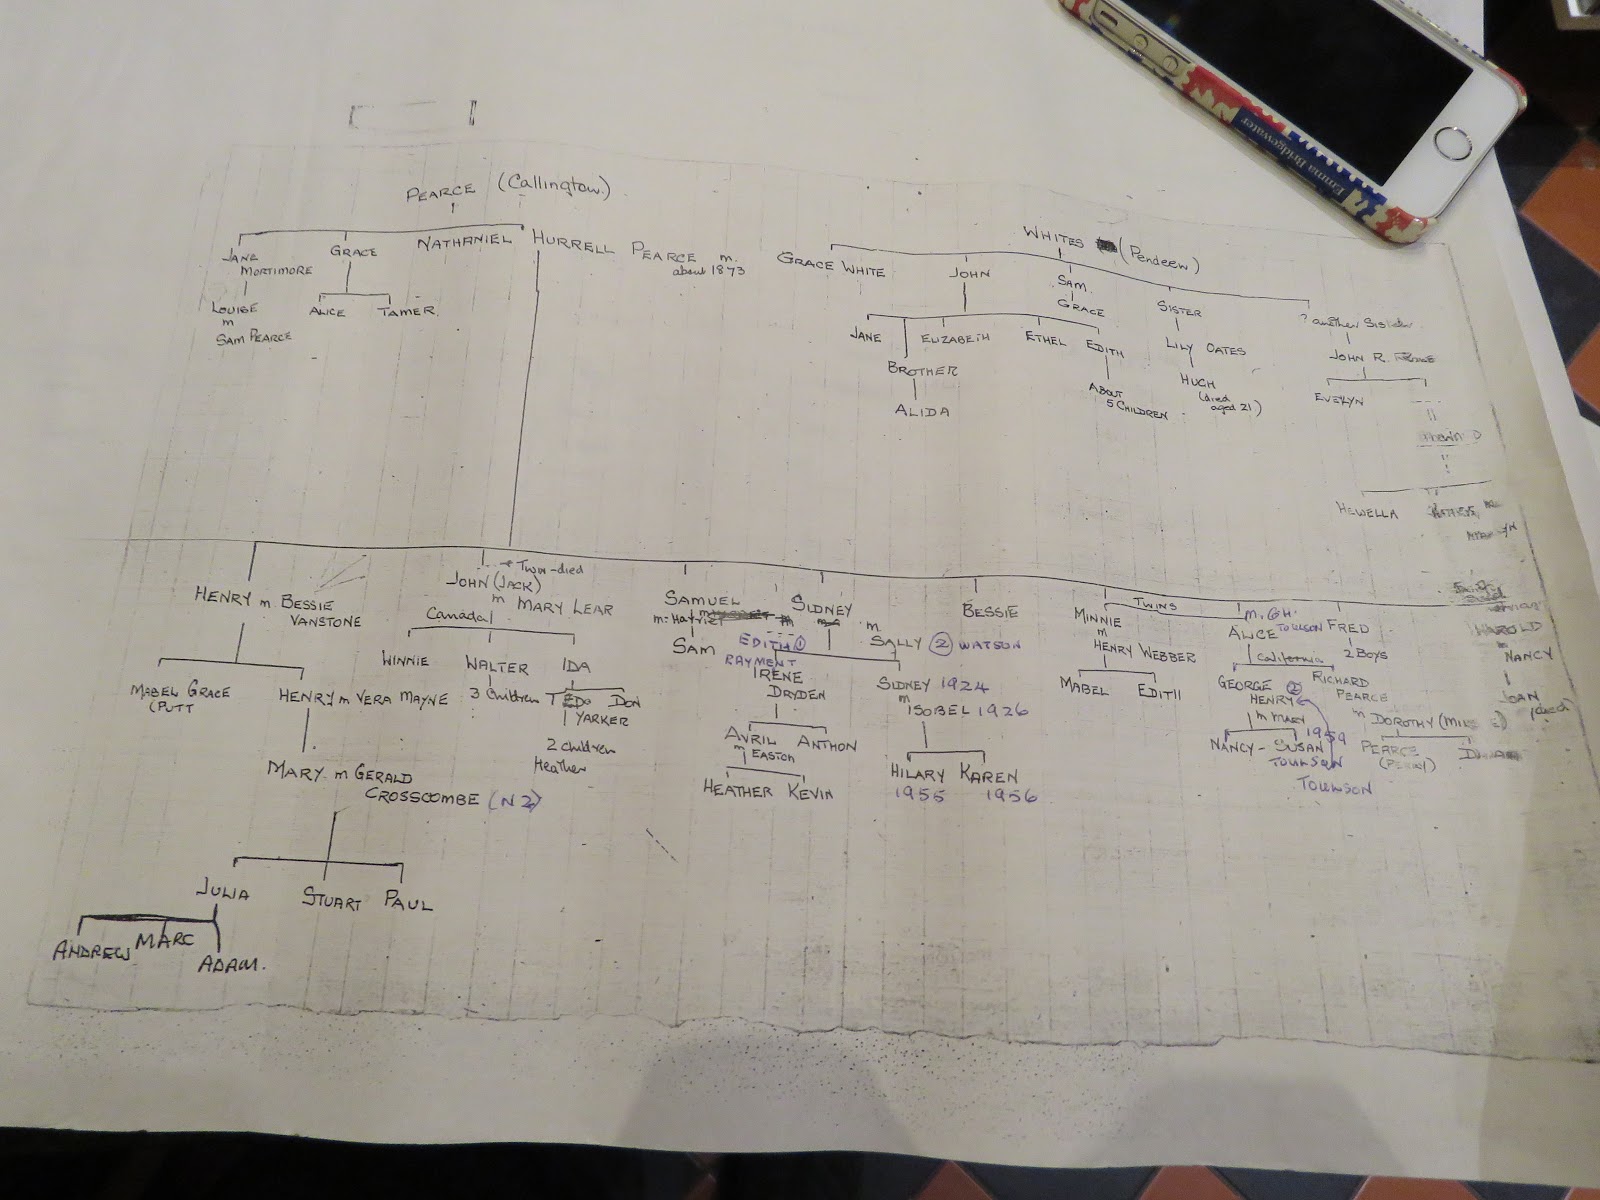 Emma Bridgewater
PEARCE (Callington)
WHITES (Pendeen)
JANE MORTIMORE
GRACE
NATHANIEL HURRELL PEARCE m. about 1873
GRACE WHITE
JOHN
SAM
SISTER
? another Sister
LOUISE
m
SAM PEARCE
ALICE
TAMER
GRACE
JANE
BROTHER
ELIZABETH
ETHEL
EDITH
LILY OATES
JOHN R.
ALIDA
ABOUT
5 CHILDREN
HUGH
(died
aged 21)
EVELYN
HEWELLA
HENRY m BESSIE
VANSTONE
Twin-died
JOHN (JACK)
m MARY LEAR
Canada
SAMUEL
m. Harriet
SAM
SIDNEY
EDITH ①
RAYMENT
m.
SALLY ② WATSON
BESSIE
TWINS
MINNIE
m
HENRY WEBBER
m. G.H.
TOULSON
ALICE
California
FRED
2 BOYS
HAROLD
NANCY
JOAN
MABEL GRACE
(PUTT
HENRY m VERA MAYNE
WINNIE
WALTER
3 children
IDA
DON
YARKER
2 children
Heather
IRENE
DRYDEN
SIDNEY 1924
m
ISOBEL 1926
MABEL
EDITH
GEORGE
HENRY ②
m MARY
1959
RICHARD
PEARCE
m DOROTHY
MARY m GERALD
CROSSCOMBE (NZ)
AVRIL
m EASTON
ANTHON
HEATHER
KEVIN
HILARY
1955
KAREN
1956
NANCY - SUSAN
TOULSON
TOULSON
PEARCE
JULIA
STUART
PAUL
ANDREW
MARC
ADAM.